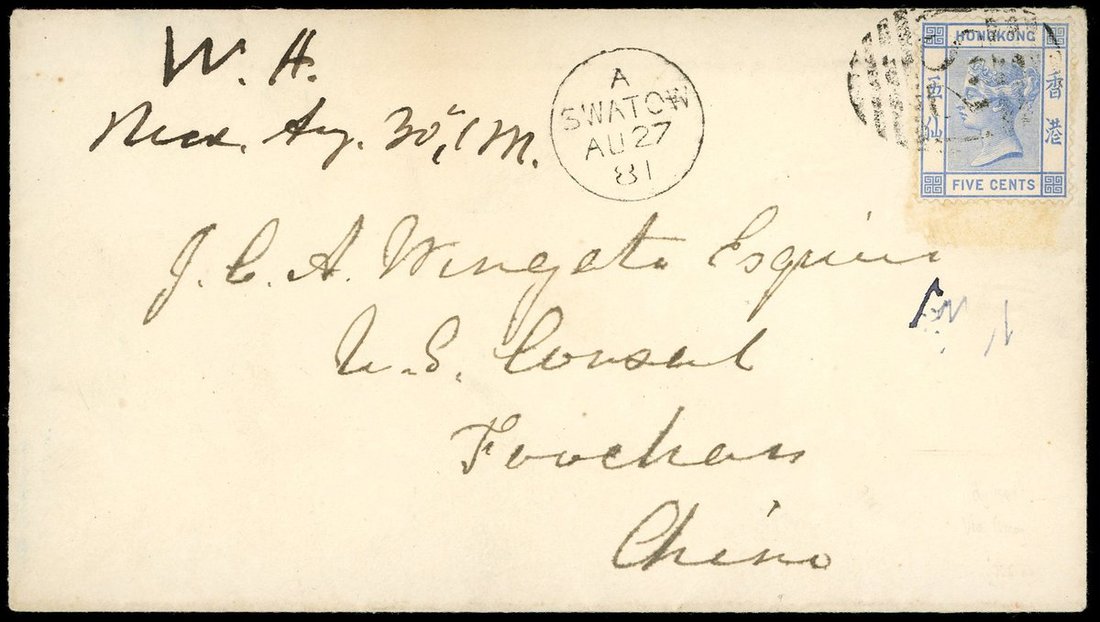 W. H.
Recd. Aug. 30, 1 M.
A
SWATOW
AU 27
81
HONG KONG
香港
五仙
FIVE CENTS
J. C. A. Wingate Esquire
U. S. Consul
Foochow
China